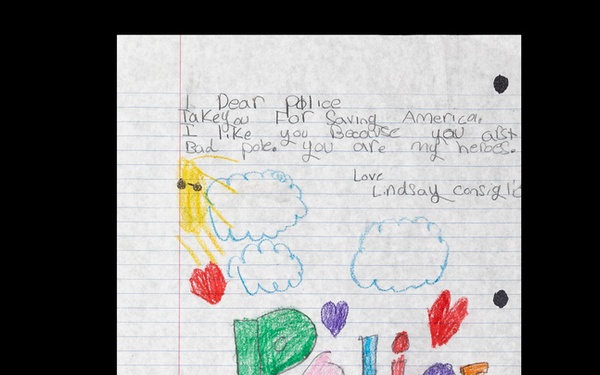 1 Dear police
Takeyou For Saving America.
I like you Because you abst
Bad pole. you are my heroes.
Love
Lindsay
Police